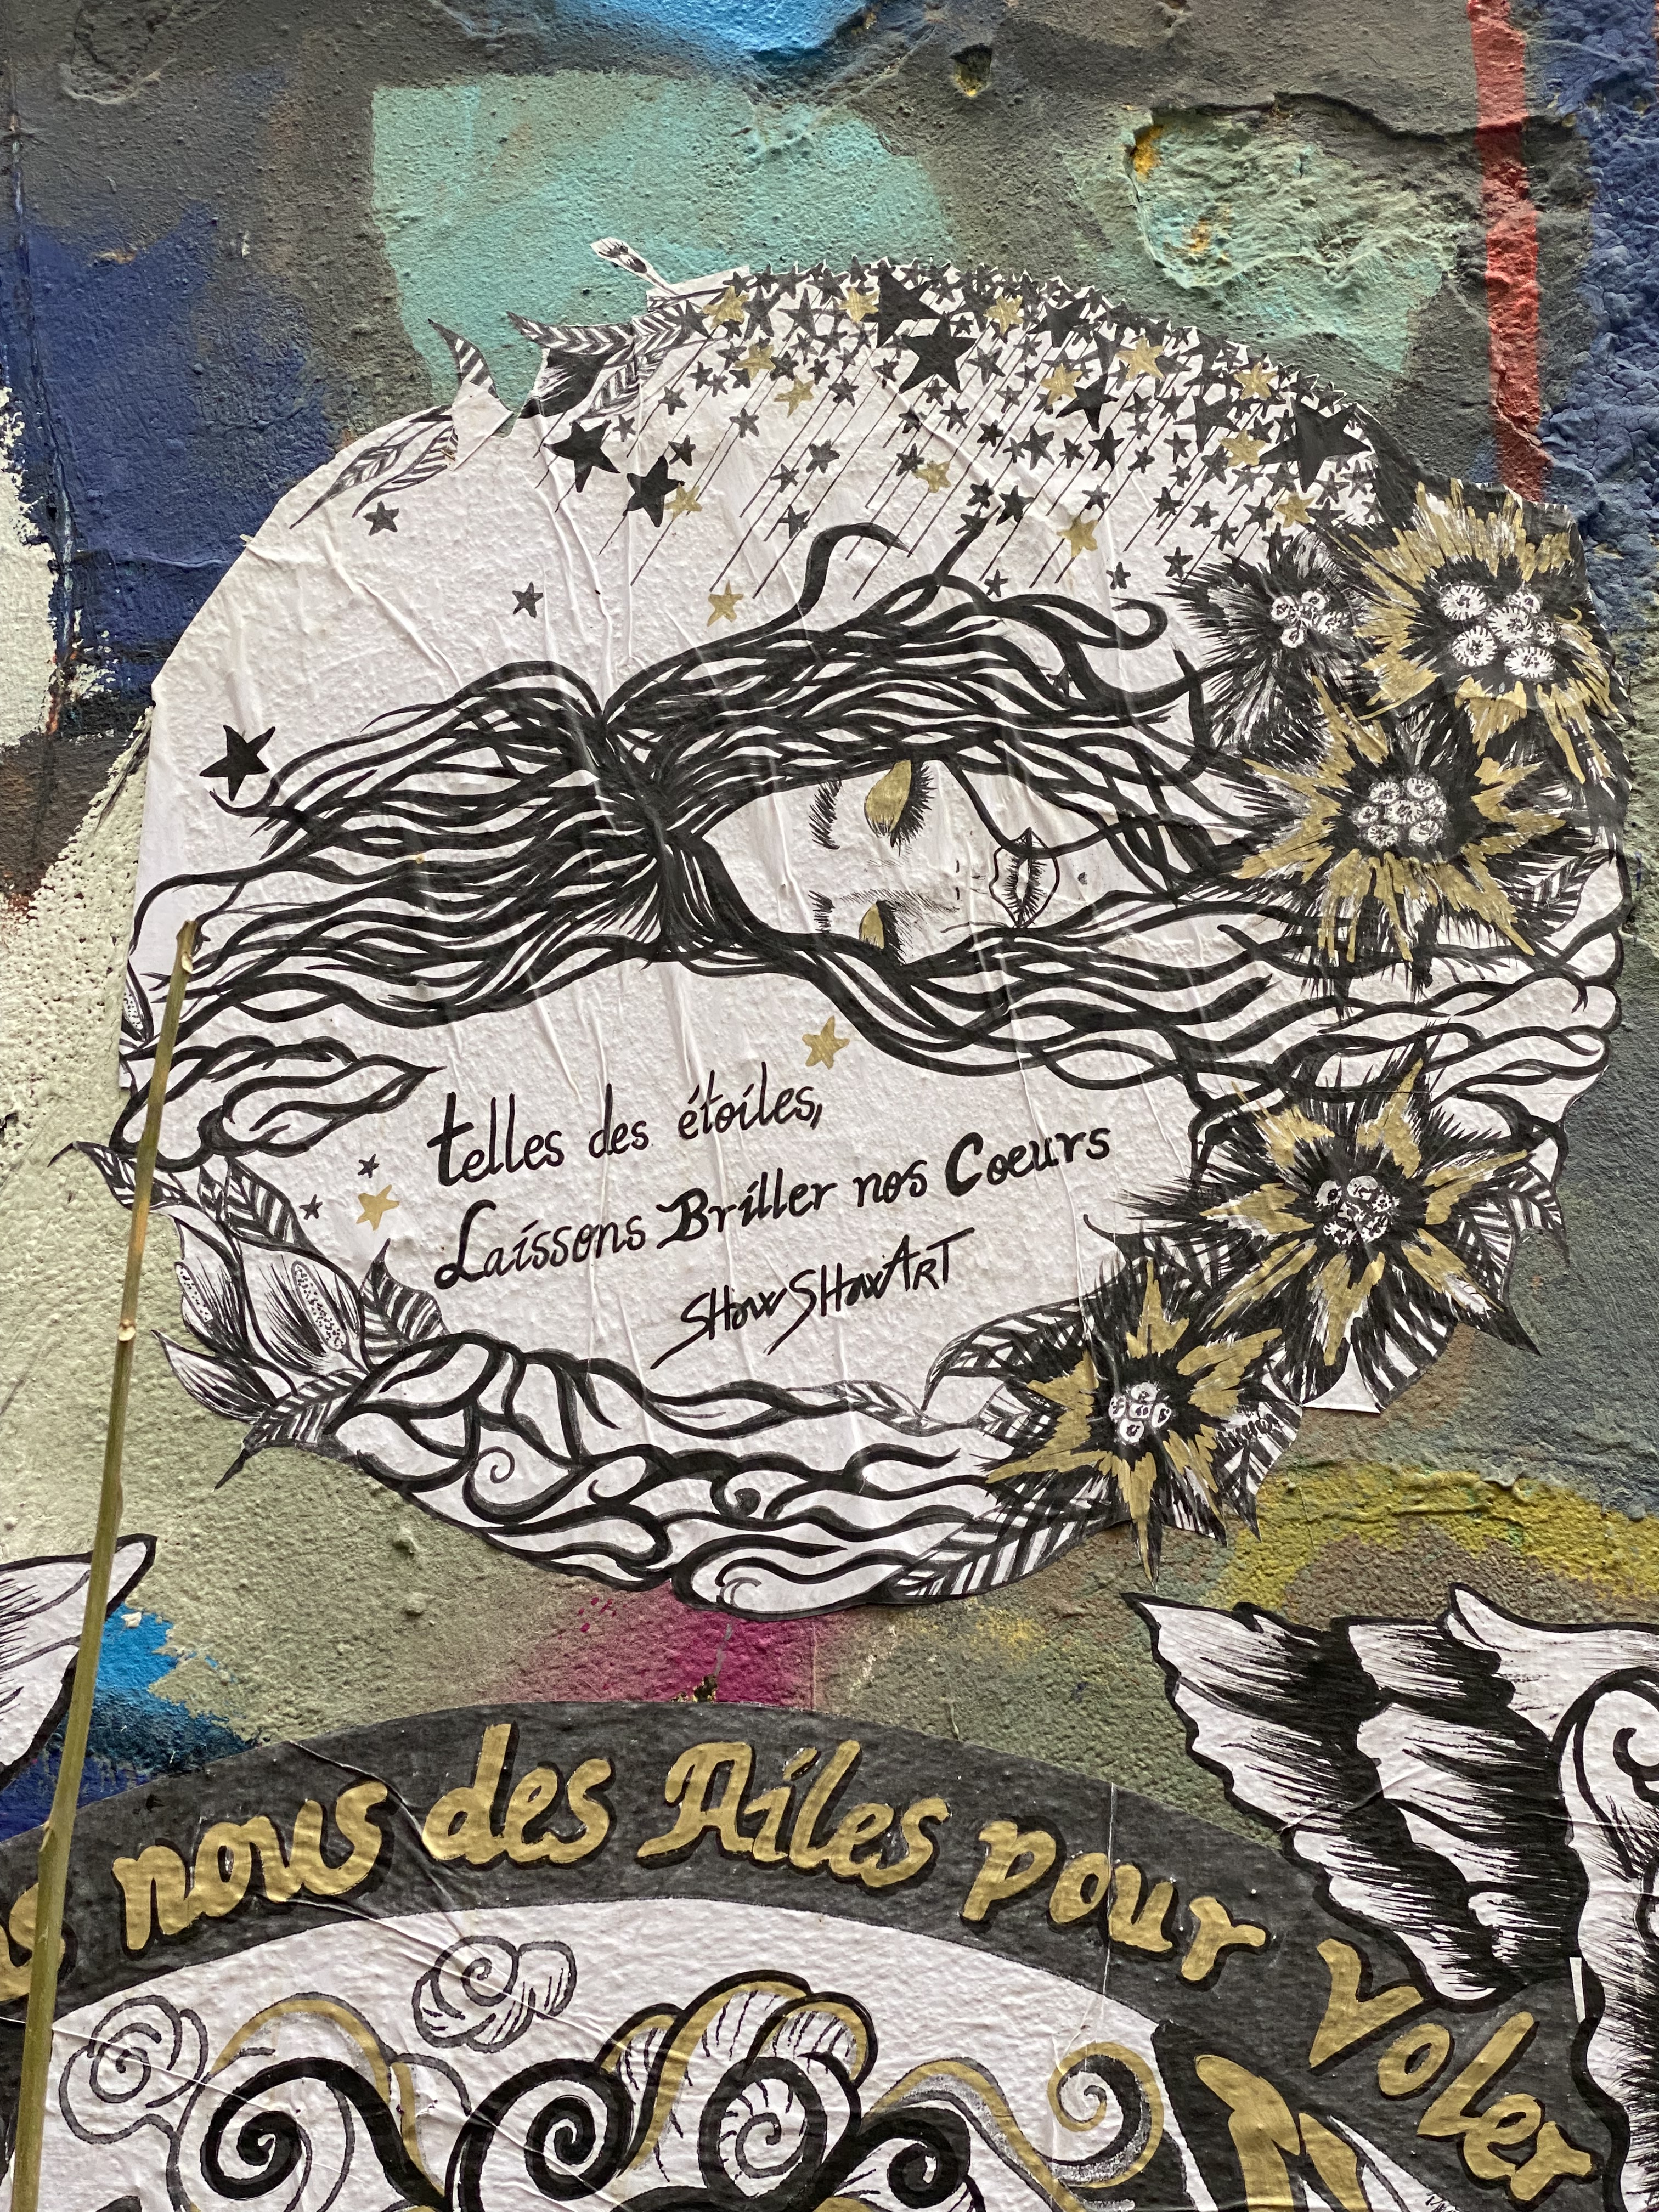 telles des étoiles,
Laissons Briller nos Coeurs
SHowSHowART
nous des Ailes pour Voler